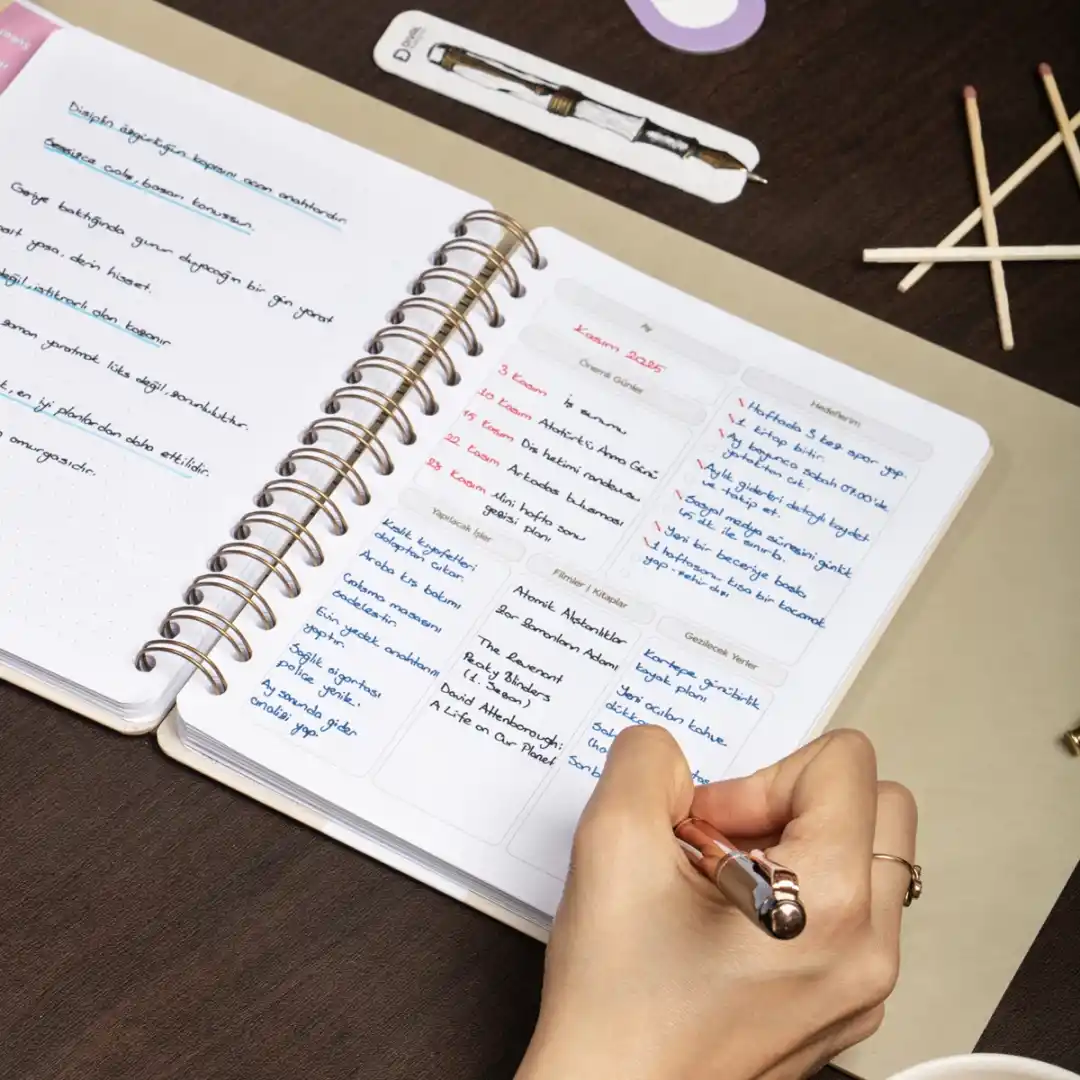 Disiplin özgürlüğün kapısını açan anahtardır.
Sessizce çalış, başarı konuşsun.
Geriye baktığında gurur duyacağın bir gün yarat
yaşa, derin hisset.
değil, istikrarlı olan kazanır
zaman yaratmak lüks değil, sorunluluktur.
en iyi planlardan daha etkilidir.
omurgasıdır.
Ay
Kasım 2025
Önemli Günler
3 Kasım İş sunumu
10 Kasım Atatürk'ü Anma Günü
15 Kasım Diş hekimi randevusu
22 Kasım Arkadaş buluşması
Kasım Mini hafta sonu
gezisi planı
Hedeflerim
Haftada 3 kez spor yap.
1 kitap bitir.
Ay boyunca sabah 07.00'de
yataktan çık.
Aylık giderleri detaylı kaydet
ve takip et.
Sosyal medya süresini günlük
45 dk. ile sınırla.
Yeni bir beceriye başla
1 haftasonu kısa bir kaçamak
yap - şehir dışı
Yapılacak İşler
Kışlık kıyafetleri
dolaptan çıkar.
Araba kış bakımı
Çalışma masasını
sadeleştir.
Evin yedek anahtarını
yaptır.
Sağlık sigortası
poliçe yenile.
Ay sonunda gider
analizi yap.
Filmler | Kitaplar
Atomik Alışkanlıklar
Zor Zamanların Adamı
The Revenant
Peaky Blinders
(1. Sezon)
David Attenborough:
A Life on Our Planet
Gezilecek Yerler
Kartepe günübirlik
kayak planı
Yeni açılan kahve